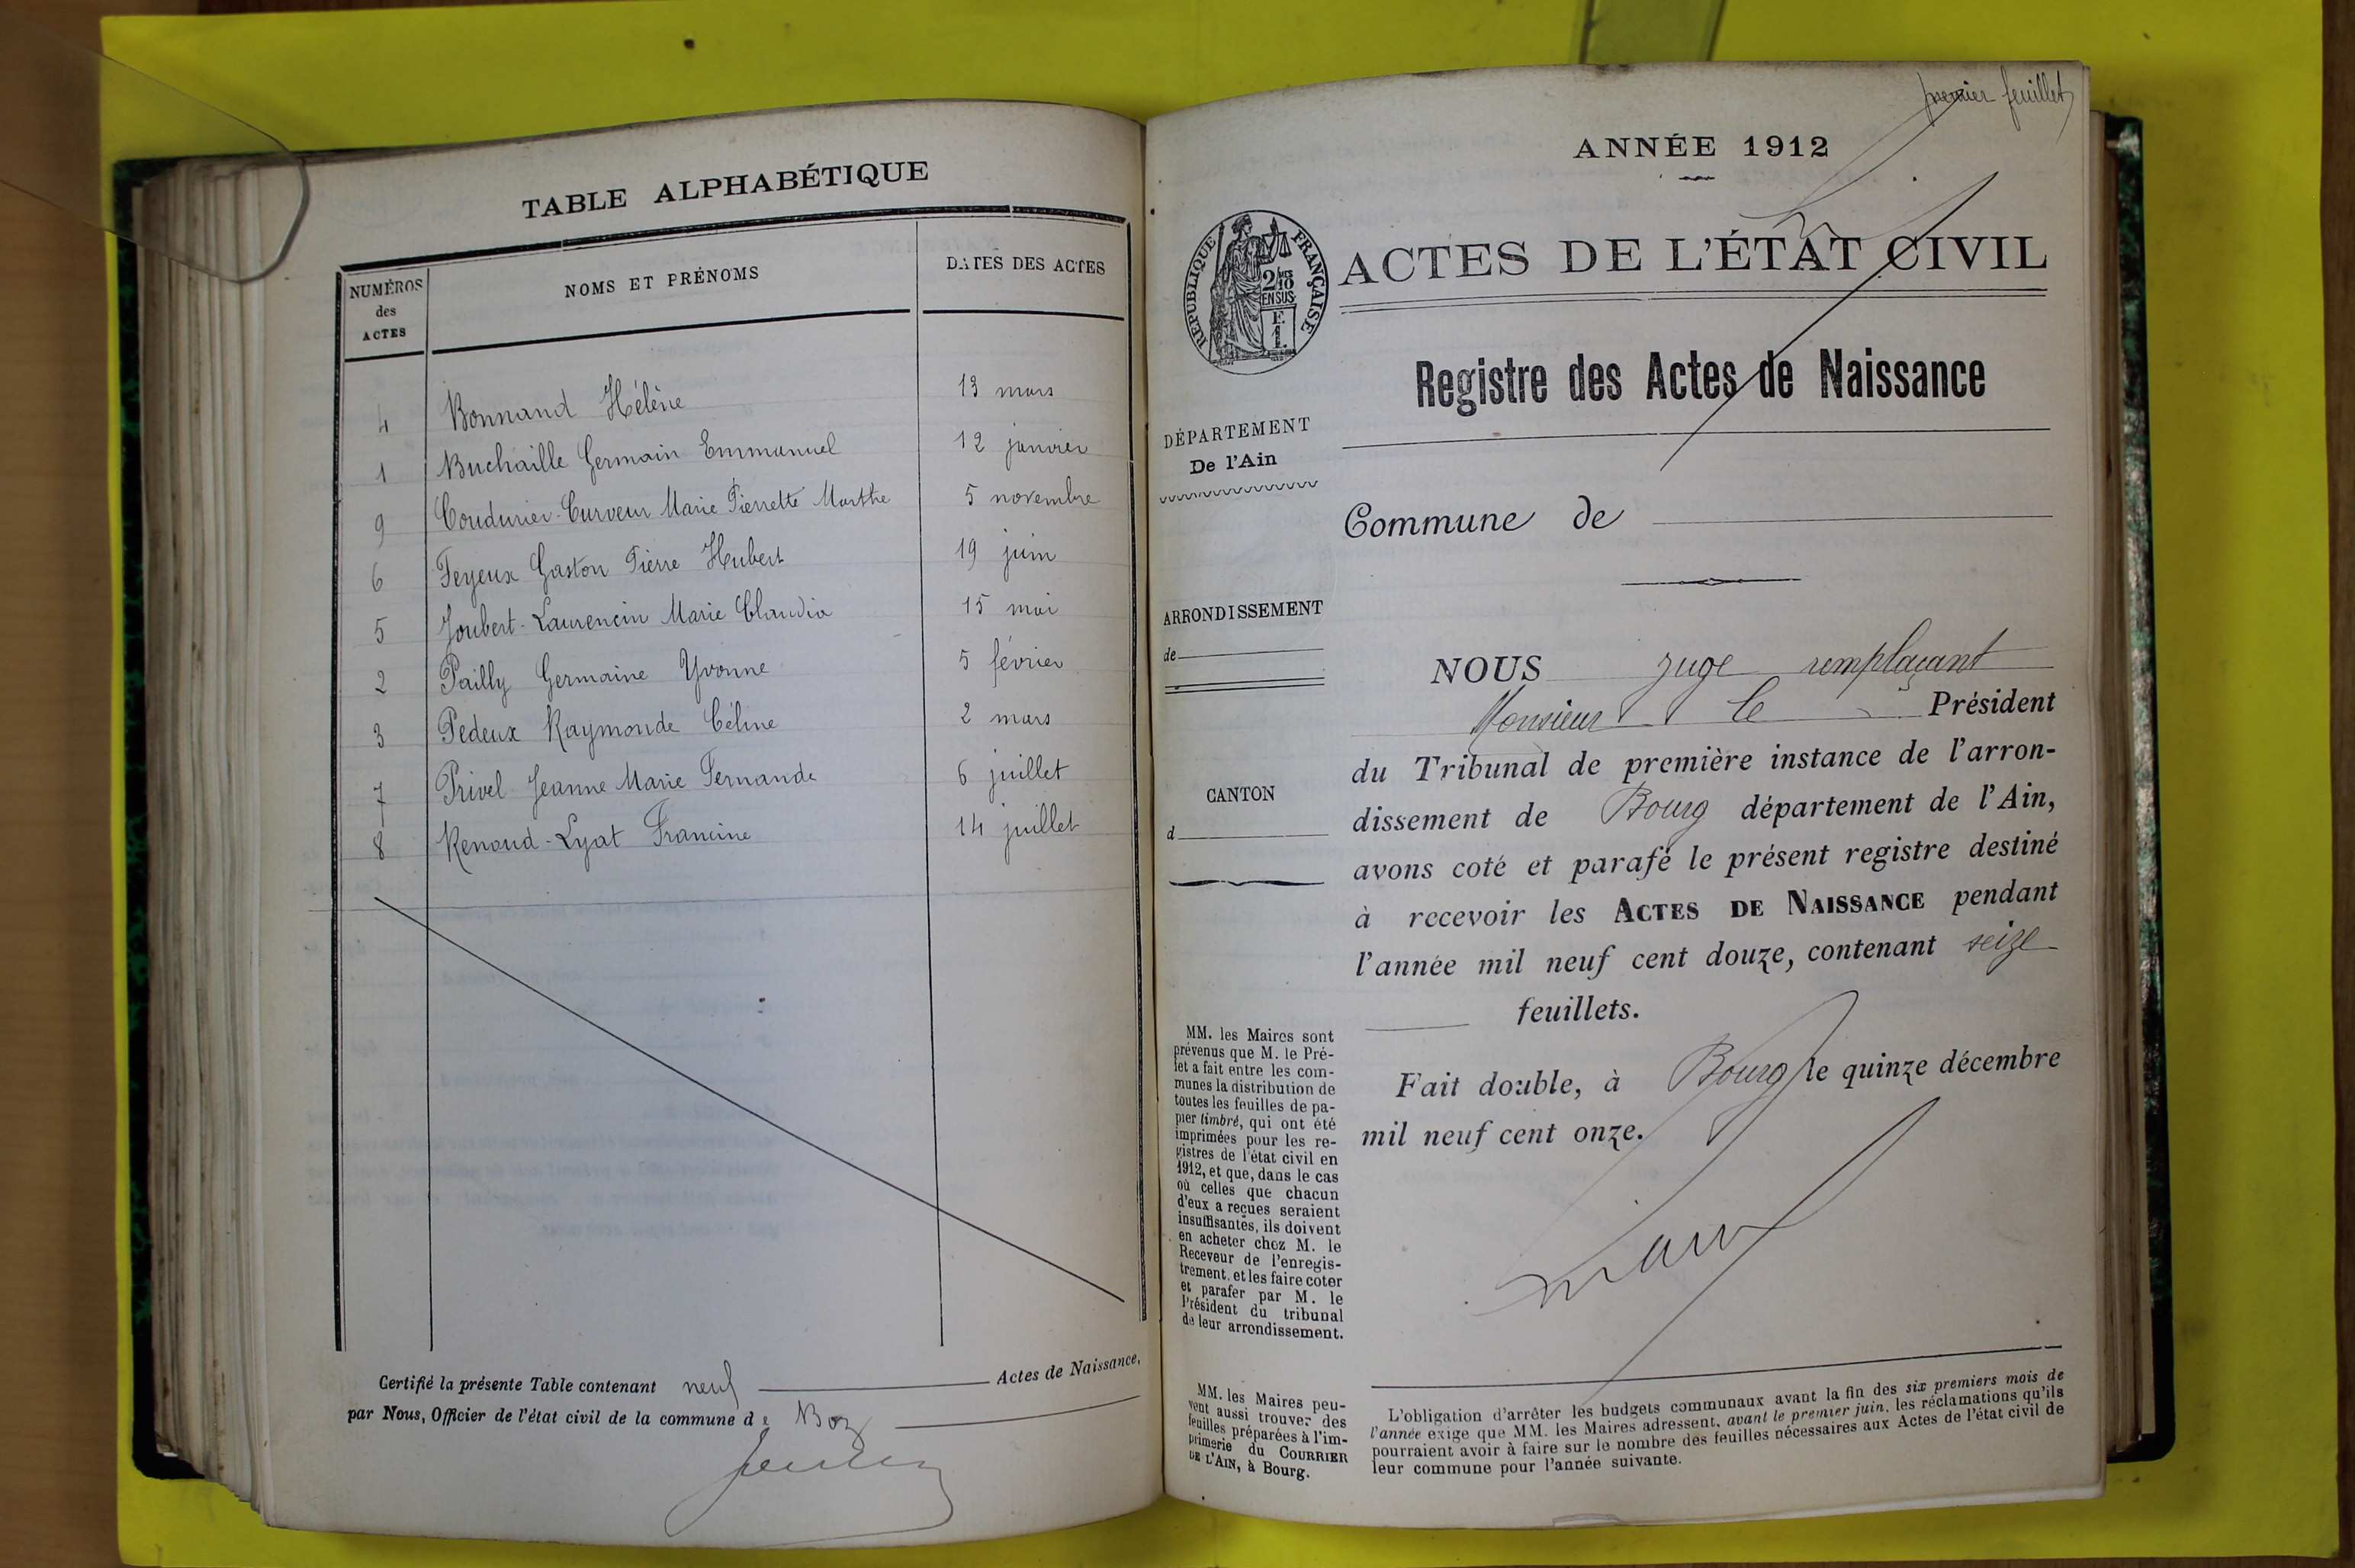 TABLE ALPHABÉTIQUE
NUMÉROS des ACTES
NOMS ET PRÉNOMS
DATES DES ACTES
4 Bonnand Hélène 13 mars
1 Buchaille Germain Emmanuel 12 janvier
9 Coudurier-Curveur Marie Pierrette Marthe 5 novembre
6 Feyeux Gaston Pierre Hubert 19 juin
5 Joubert-Laurencin Marie Claudia 15 mai
2 Pailly Germaine Yvonne 5 février
3 Pedeux Raymonde Céline 2 mars
7 Privel Jeanne Marie Fernande 6 juillet
8 Renoud-Lyat Francine 14 juillet
Certifié la présente Table contenant neuf Actes de Naissance,
par Nous, Officier de l'état civil de la commune de Boz
premier feuillet
ANNÉE 1912
RÉPUBLIQUE FRANÇAISE
2/10
EN SUS
E.
1.
ACTES DE L'ÉTAT CIVIL
Registre des Actes de Naissance
DÉPARTEMENT
De l'Ain
Commune de
ARRONDISSEMENT
de
CANTON
d
NOUS juge remplaçant
Monsieur le Président
du Tribunal de première instance de l'arron-
dissement de Bourg département de l'Ain,
avons coté et parafé le présent registre destiné
à recevoir les ACTES DE NAISSANCE pendant
l'année mil neuf cent douze, contenant seize
feuillets.
Fait double, à Bourg le quinze décembre
mil neuf cent onze.
MM. les Maires sont
prévenus que M. le Pré-
fet a fait entre les com-
munes la distribution de
toutes les feuilles de pa-
pier timbré, qui ont été
imprimées pour les re-
gistres de l'état civil en
1912, et que, dans le cas
où celles que chacun
d'eux a reçues seraient
insuffisantes, ils doivent
en acheter chez M. le
Receveur de l'enregis-
trement, et les faire coter
et parafer par M. le
Président du tribunal
de leur arrondissement.
MM. les Maires peu-
vent aussi trouver des
feuilles préparées à l'im-
primerie du COURRIER
DE L'AIN, à Bourg.
L'obligation d'arrêter les budgets communaux avant la fin des six premiers mois de
l'année exige que MM. les Maires adressent, avant le premier juin, les réclamations qu'ils
pourraient avoir à faire sur le nombre des feuilles nécessaires aux Actes de l'état civil de
leur commune pour l'année suivante.